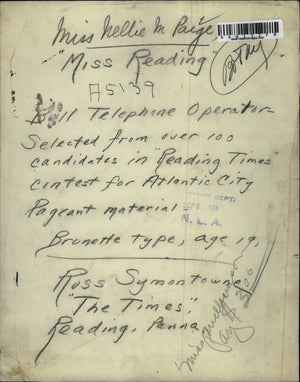 Miss Nellie M Paige
"Miss Reading"
A5139
Bell Telephone Operator
Selected from over 100
candidates in "Reading Times"
contest for Atlantic City
Pageant material
SEP 1924
N. E. A.
Brunette type, age 19,
Russ Symontowne
"The Times",
Reading, Penna